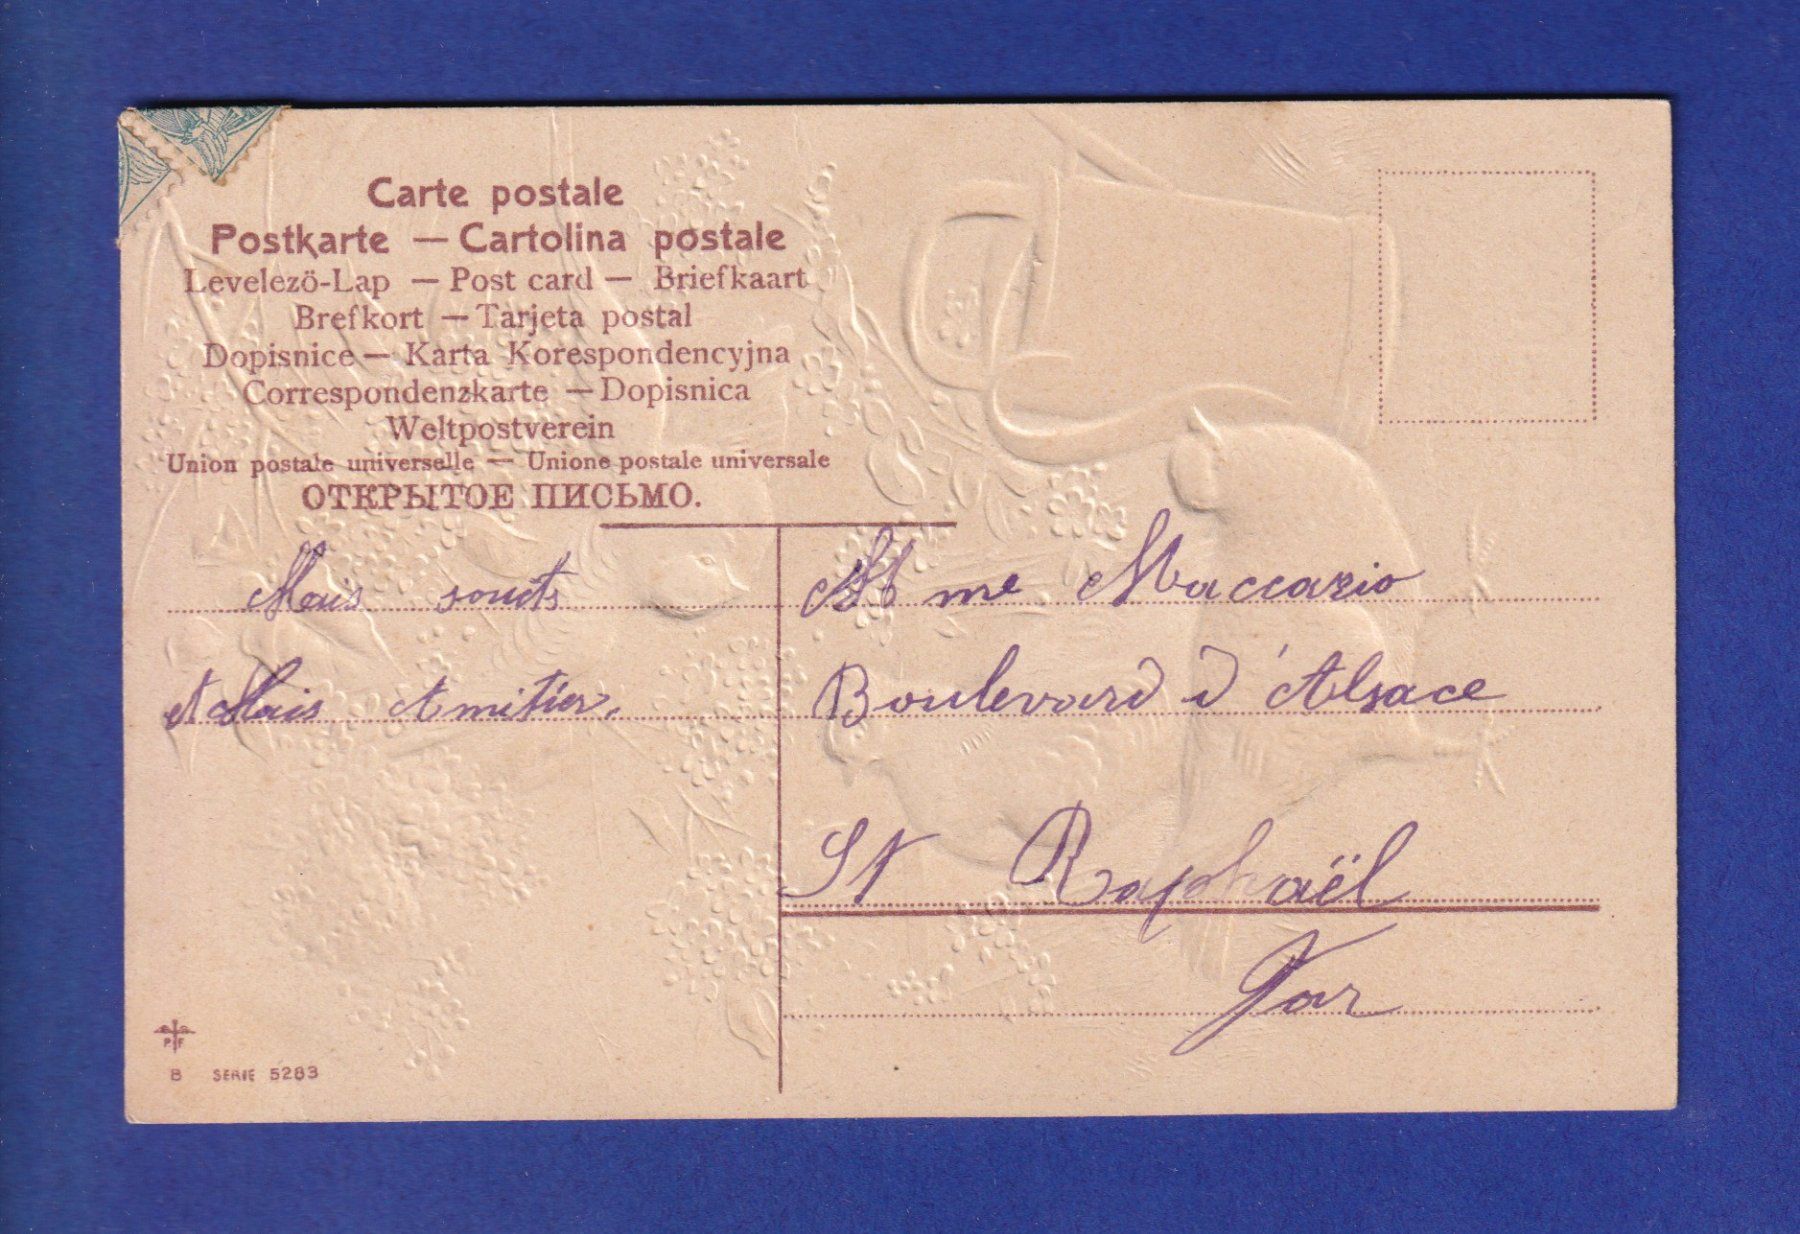 Carte postale
Postkarte — Cartolina postale
Levelezö-Lap — Post card — Briefkaart
Brefkort — Tarjeta postal
Dopisnice — Karta Korespondencyjna
Correspondenzkarte — Dopisnica
Weltpostverein
Union postale universelle — Unione postale universale
ОТКРЫТОЕ ПИСЬМО.
Mais
et Mais Amitiés.
Mme Maccario
Boulevard d'Alsace
St Raphaël
Var
P F
B SERIE 5283